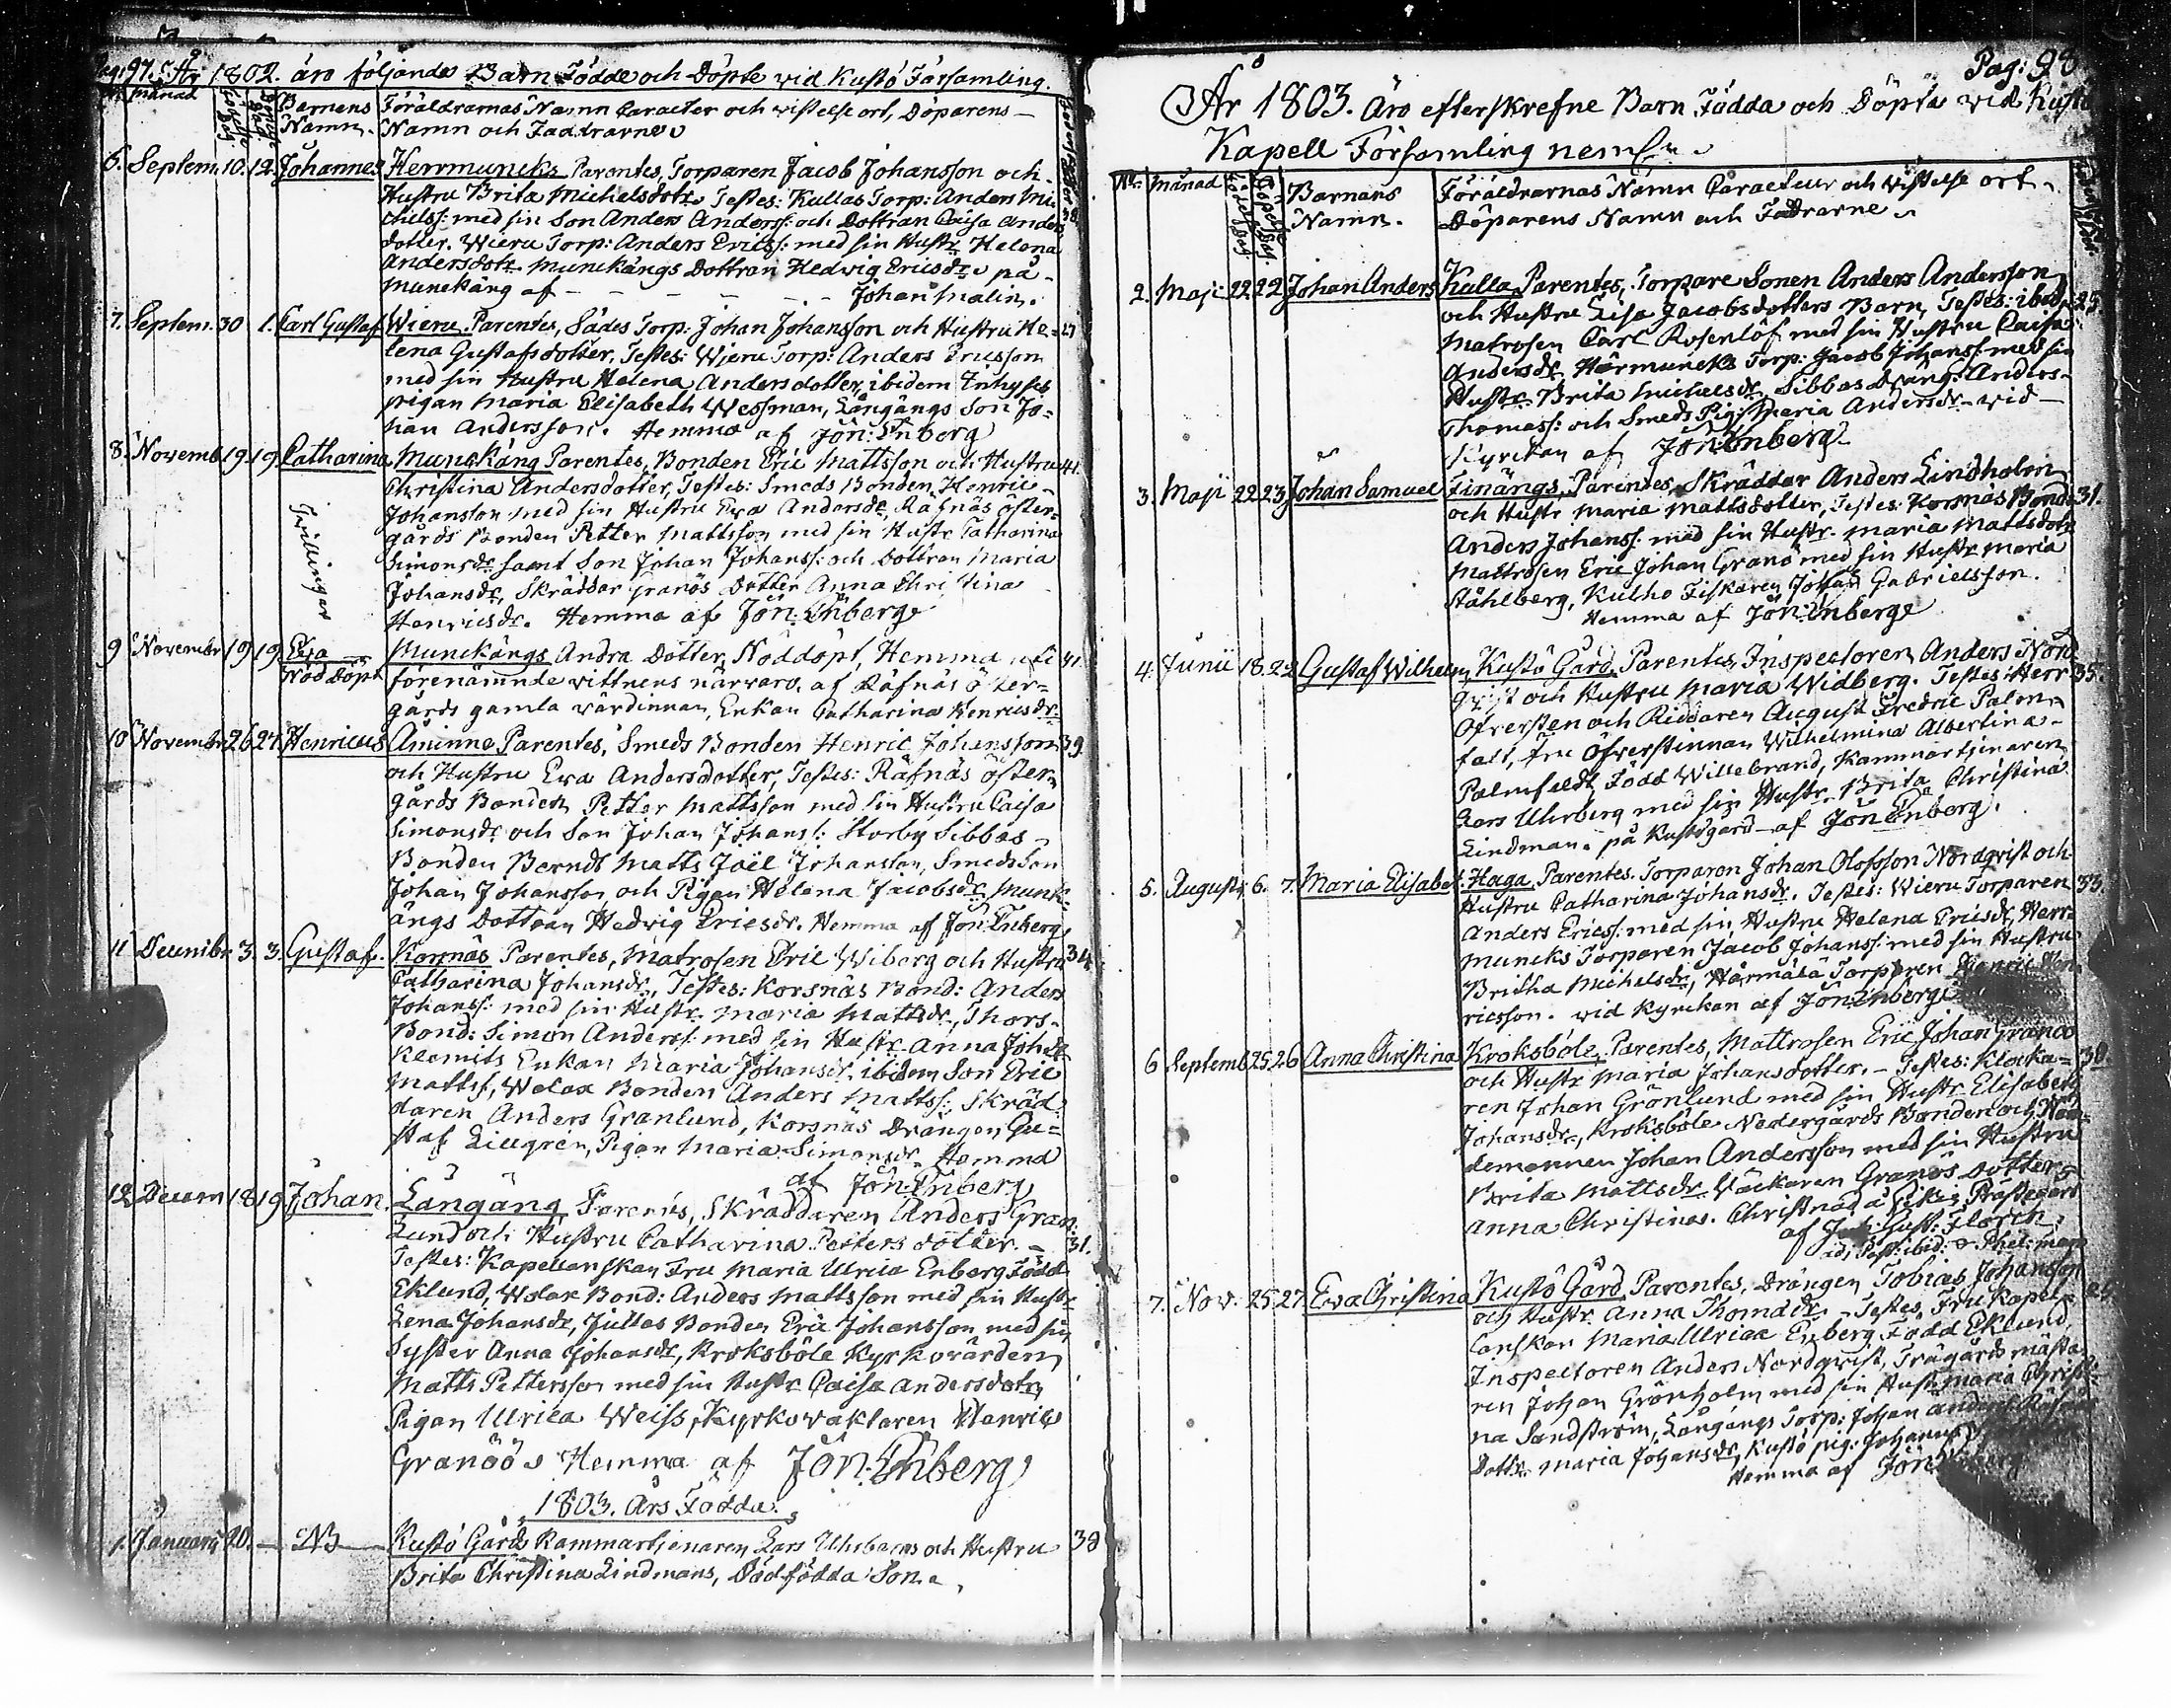 Pag: 97. År 1802. äro följande Barn Födde och Döpte vid Kustö Församling.
månad
Barnens Namn.
Föräldrarnas Namn Caracter och vistelse ort, Döparens
Namn och Faddrarne
6. Septem. 10. 12. Johannes Herrmuncks Parentes, Torparen Jacob Johansson och
Hustru Brita Michelsdotr. Testes: Kullas Torp: Anders Mi
chelss: med sin Son Anders Anderss: och Dottran Caisa Anders 38
dotter. Wieru Torp: Anders Ericss: med sin Hustr. Helena
Andersdotr. Munckängs Dottran Hedvig Ericsdr. på
Munckäng af — — — — — Johan Malin.
7. Septem. 30 1. Carl Gustaf Wieru Parentes, Sädes Torp: Johan Johansson och Hustru He= 27
lena Gustafsdotter, Testes: Wieru Torp: Anders Ericsson
med sin Hustru Helena Andersdotter, ibidem Inhyses
pigan Maria Elisabeth Wessman, Långängs Son Jo=
han Andersson. Hemma af Jon: Enberg
8. Novemb. 19. 19. Catharina Munckäng Parentes, Bonden Eric Mattsson och Hustru 41.
Christina Andersdotter, Testes: Smeds Bonden Henric
Johansson med sin Hustru Eva Andersdr, Räfnäs öster=
gårds Bonden Petter Mattsson med sin Hustr. Catharina
Simonsdr samt Son Johan Johanss: och Dottran Maria
Johansdr, Skräddar Granös Dotter Anna Christina
Henricsdr. Hemma af Jon: Enberg
Tvillingar
9 Novembr 19 19. Eva Munckängs Andra Dotter, Nöddöpt, Hemma uti 41.
Nöd Döpt förenämnde vittnens närvaro, af Räfnäs öster=
gårds gamla värdinnan, Enkan Catharina Henricsdr.
10 Novembr 26 27. Henricus Åminne Parentes, Smeds Bonden Henric Johansson 39.
och Hustru Eva Andersdotter, Testes: Räfnäs öster
gårds Bonden Petter Mattsson med sin Hustru Caisa
Simonsdr och Son Johan Johanss: Storby Sibbas
Bonden Berndt Matts Joël Johansson, Smeds Son
Johan Johansson och Pigan Helena Jacobsdr. Munk=
ängs Dottran Hedvig Ericsdr. Hemma af Jon: Enberg
11 Decembr. 3. 3. Gustaf. Korsnäs Parentes, Matrosen Eric Wiberg och Hustru 34.
Catharina Johansdr, Testes: Korsnäs Bond: Anders
Johanss: med sin Hustr. Maria Mattsdr, Thors
Bond: Simon Anderss: med sin Hustr Anna Johsdr
Klemits Enkan Maria Johansdr. ibidem Son Eric
Mattss, Walax Bonden Anders Mattss: Skräd
daren Anders Granlund, Korsnäs Drängen Gu=
staf Lillgren, Pigan Maria Simonsdr. Hemma
af Jon: Enberg
12 Decem 18 19 Johan. Långäng Parent's, Skräddaren Anders Gran
lund och Hustru Catharina Petters dotter. 31.
Testes: Kapellanskan Fru Maria Ulrica Enberg Född
Eklund, Walax Bond: Anders Mattsson med sin Hustr
Lena Johansdr, Jullas Bonden Eric Johansson med sin
Syster Anna Johansdr, Kroksböle Kyrkovärden
Matts Pettersson med sin Hustr Caisa Andersdotr,
Pigan Ulrica Weiss, Kyrkovaktaren Henric
Granöö. Hemma af Jon: Enberg
1803. Års Födda.
1. Januarii 20. — NB — Kustö Gårds Kammartjenaren Lars Uhrbergs och Hustru 38
Brita Christina Lindmans, Dödfödda Son.
Pag: 98
År 1803. Äro efterskrefne Barn Födda och Döpta vid Kustö
Kapell Församling neml:n
No: månad Födelse Dag. Döpelse Dag. Barnans Namn. Föräldrarnas Namn Caracteur och vistelse ort
Döparens Namn och Faddrarne
2. Maji 22 22 Johan Anders Kulla Parentes, Torpare Sonen Anders Andersson
och Hustru Lisa Jacobsdotters Barn, Testes: ibid: 25
Matrosen Carl Rosenlöf med sin Hustru Caisa
Andersdr Härmuncks Torp: Jacob Johanss: med sin
Hustr. Brita Michelsdr, Sibbas Dräng: Anders
Thomass: och Smeds Pig: Maria Andersdr. vid
Kyrckan af Jon: Enberg
3. Maji 22 23 Johan Samuel Finängs, Parentes, Skräddar Anders Lindholm
och Hustr Maria Mattsdotter, Testes: Korsnäs Bond: 31.
Anders Johanss: med sin Hustr. Maria Mattsdotr
Mattrosen Eric Johan Granö med sin Hustr Maria
Ståhlberg, Kulho Fiskaren Johan Gabrielsson.
Hemma af Jon: Enberg
4. Junii 18. 22 Gustaf Wilhelm Kustö Gård, Parentes, Inspectoren Anders Nord
qvist och Hustru Maria Widberg. Testes: Herr 35.
Öfversten och Riddaren August Fredric Palm
falt, Fru Öfverstinnan Wilhelmina Albertina
Palmfeldt, Född Willebrand, Kammartjenaren
Lars Uhrberg med sin Hustr. Brita Christina
Lindman. på Kustögård af Jon: Enberg.
5. Augusti 6. 7. Maria Elisabet Haga, Parentes. Torparen Johan Olofsson Nordqvist och
Hustru Catharina Johansdr. Testes: Wieru Torparen 33.
Anders Ericss: med sin Hustru Helena Ericsdr, Herr=
muncks Torparen Jacob Johanss: med sin Hustru
Britha Michelsdr, Härmälä Torparen Henric Hen
ricsson. vid Kyrckan af Jon: Enberg
6 Septemb 25 26 Anna Christina Kroksböle, Parentes, Mattrosen Eric Johan Granöö
och Hustr Maria Johansdotter. — Testes: Klocka= 30.
ren Johan Grönlund med sin Hustr Elisabeth
Johansdr., Kroksböle Nedergårds Bonden och Näm
demannen Johan Andersson med sin Hustru
Brita Mattsdr. Väckaren Granös Dotter
Anna Christina. Christnad å Prästegård
af Joh: Gust: Florin
adj: Past: ibid: & Phil: mag
7. Nov. 25. 27 Eva Christina Kustö Gård Parentes, Drängen Tobias Johansson
och Hustr. Anna Thomadr. — Testes, Fru Kapel=
lanskan Maria Ulrica Enberg Född Eklund,
Inspectoren Anders Nordqvist, Trägårdsmästa
ren Johan Grönholm med sin Hustr Maria Christi=
na Sandström, Långängs Torp: Johan Anders
Dottr. Maria Johansdr, Kustö pig: Johanna
Hemma af Jon: Enberg